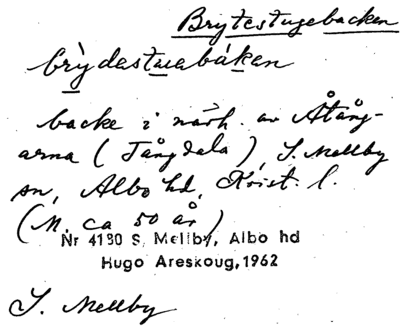 Brytestugebacken
brỳdastuabákan
backe i närh. av Åtång-
arna (Tångdala), S. Mellby
sn, Albo hd, Krist. l.
(M, ca 50 år)
Nr 4180 S. Mellby, Albo hd
Hugo Areskoug, 1962
S. Mellby